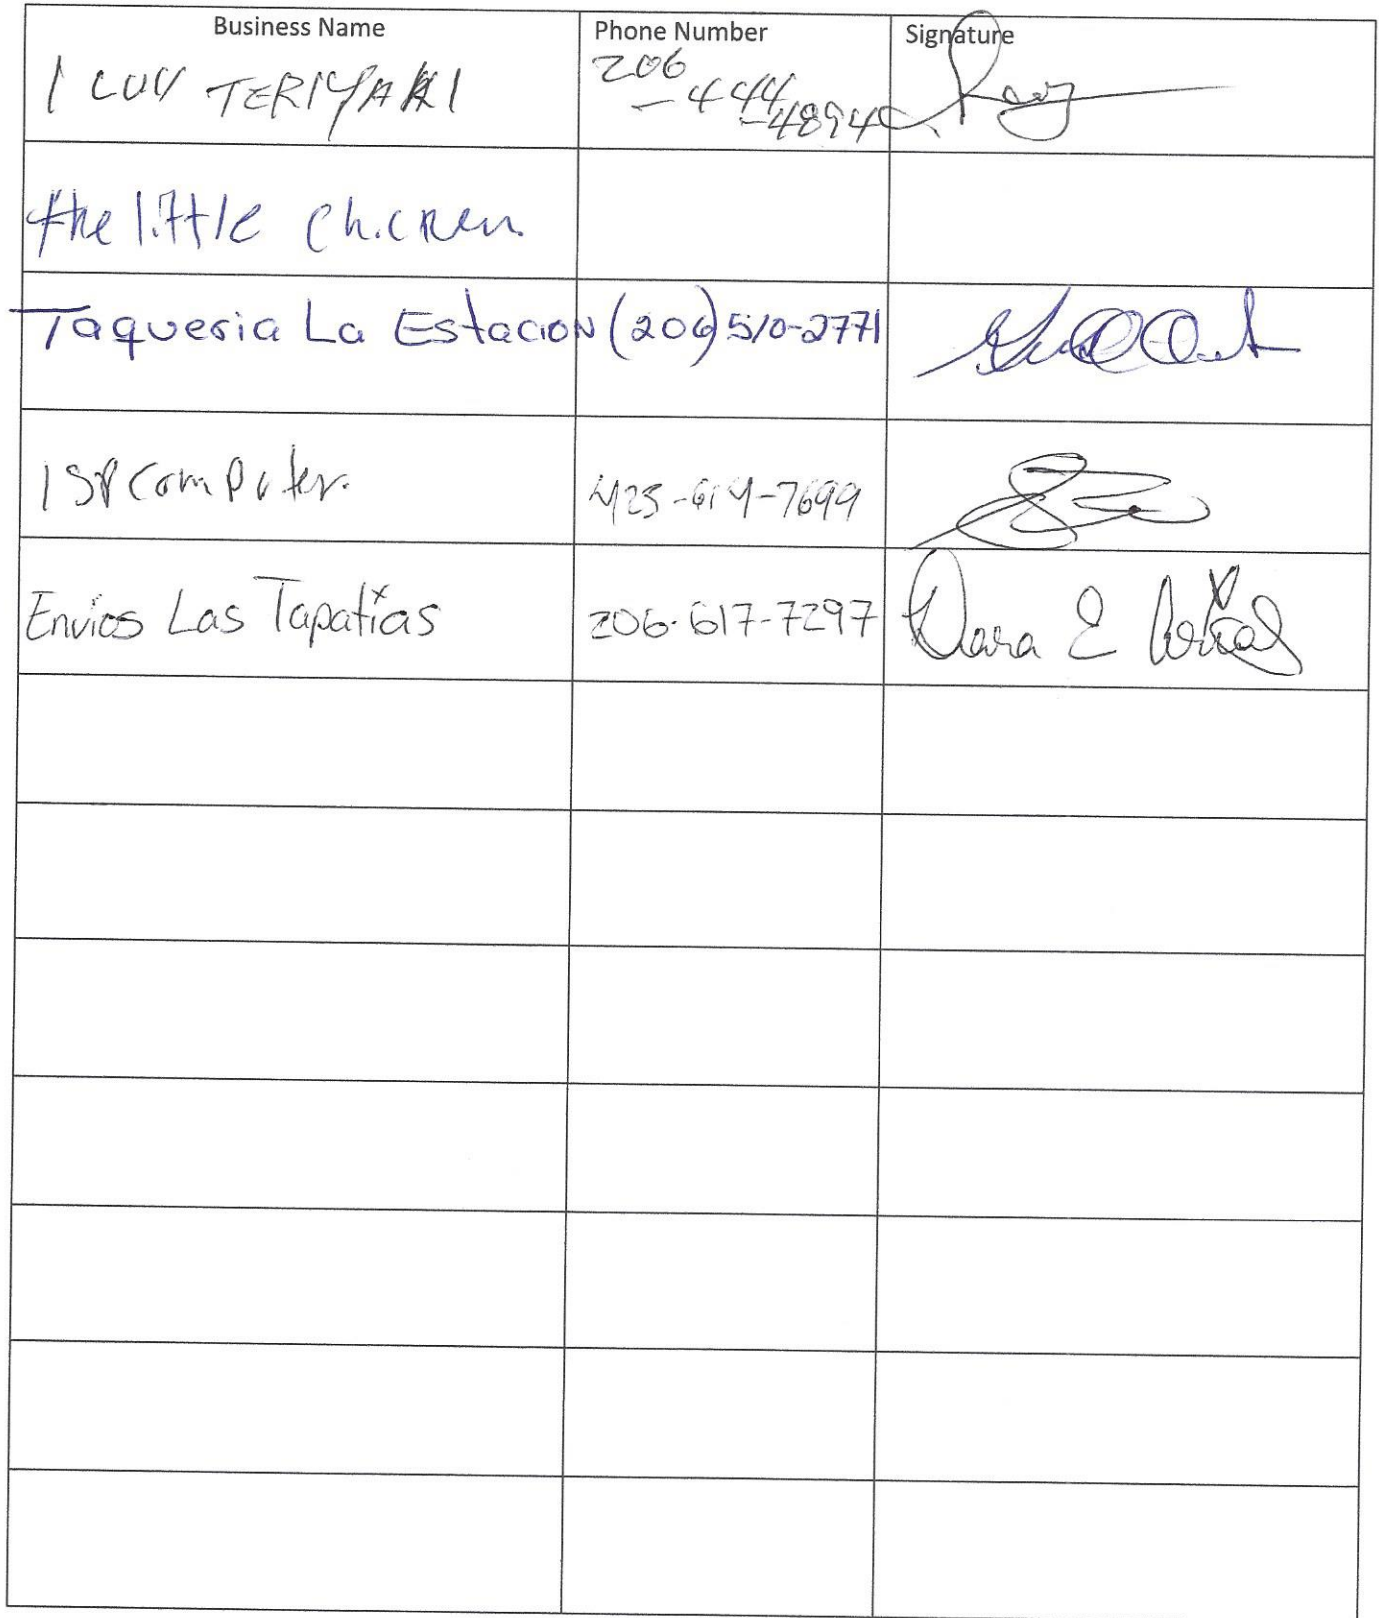 Business Name Phone Number Signature
I LUV TERIYAKI 206
-444
-4894
the little chicken
Taqueria La Estacion (206) 510-2771
ISP Computer. 425-614-7699
Envios Las Tapatías 206-617-7297